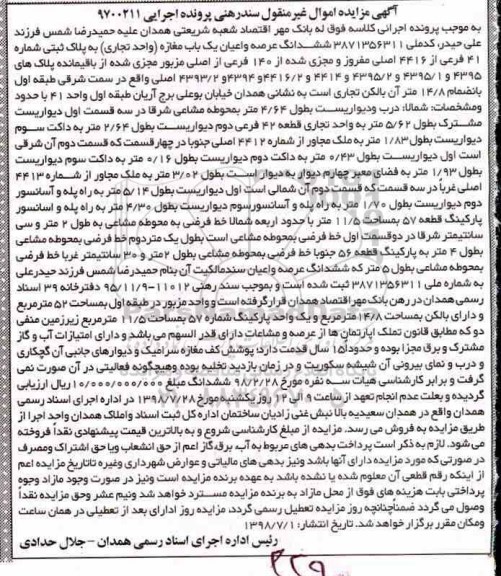 آگهی مزایده اموال غیر منقول سند رهنی پرونده اجرایی ۹۷۰۰۲۱۱
به موجب پرونده اجرائی کلاسه فوق له بانک مهر اقتصاد شعبه شریعتی همدان علیه حمیدرضا شمس فرزند
علی حیدر، کدملی ۳۸۷۱۳۵۶۳۱۱ ششدانگ عرصه واعیان یک باب مغازه (واحد تجاری) به پلاک ثبتی شماره
۴۱ فرعی از ۴۴۱۶ اصلی مفروز و مجزی شده از ۱۴۰ فرعی از اصلی مزبور مجزی شده از باقیمانده پلاک های
۴۳۹۵ و ۴۳۹۵/۱ و ۴۳۹۵/۲ و ۴۴۱۴ و ۴۴۱۶/۲ و ۴۳۹۴ و ۴۳۹۳/۲ اصلی واقع در سمت شرقی طبقه اول
بانضمام ۱۴/۸ متر آن بالکن تجاری است به نشانی همدان خیابان بوعلی برج آریان طبقه اول واحد ۴۱ با حدود
ومشخصات: شمالا: درب ودیواریست بطول ۴/۶۴ متر بمحوطه مشاعی شرقا در سه قسمت اول دیواریست
مشترک بطول ۵/۶۲ متر به واحد تجاری قطعه ۴۲ فرعی دوم دیواریست بطول ۲/۶۴ متر به داکت سوم
دیواریست بطول ۱/۸۳ متر به ملک مجاور از شماره ۴۴۱۲ اصلی جنوبا در چهار قسمت که قسمت دوم آن شرقی
است اول دیواریست بطول ۰/۴۳ متر به داکت دوم دیواریست بطول ۰/۱۶ متر به داکت سوم دیواریست
بطول ۱/۹۳ متر به فضای نور چهارم دیوار به دیواریست بطول ۳/۰۲ متر به ملک مجاور از شماره ۴۴۱۳
اصلی غرباً در سه قسمت که قسمت دوم آن شمالی است اول دیواریست بطول ۵/۱۴ متر به راه پله و آسانسور
دوم دیواریست بطول ۱/۷۰ متر به راه پله و آسانسور سوم دیواریست بطول ۴/۳۰ متر به راه پله و اسانسور
پارکینگ قطعه ۵۷ بمساحت ۱۱/۵ متر با حدود اربعه شمالا خط فرضی به محوطه مشاعی به طول ۲ متر و سی
سانتیمتر شرقا در دوقسمت اول خط فرضی بمحوطه مشاعی است بطول یک متر دوم خط فرضی بمحوطه مشاعی
بطول ۴ متر به پارکینگ قطعه ۵۶ جنوبا خط فرضی بمحوطه مشاعی بطول ۲متر و ۳۰ سانتیمتر غربا خط فرضی
بمحوطه مشاعی بطول ۵ متر که ششدانگ عرصه واعیان سندمالکیت آن بنام حمیدرضا شمس فرزند حیدرعلی
به شماره ملی ۳۸۷۱۳۵۶۳۱۱ ثبت شده است و بموجب سند رهنی ۱۱۰۱۲-۹۵/۱۱/۹ دفترخانه ۳۹ اسناد
رسمی همدان در رهن بانک مهر اقتصاد همدان قرار گرفته است و واحد مزبور در طبقه اول بمساحت ۵۲ مترمربع
و دارای بالکن بمساحت ۱۴/۸ مترمربع و یک واحد پارکینگ شماره ۵۷ بمساحت ۱۱/۵ مترمربع زیرزمین منفی
دو که مطابق قانون تملک اپارتمان ها از عرصه و مشاعات دارای قدر السهم می باشد و دارای امتیازات آب و گاز
مشترک و برق مجزا بوده و حدود۱۵ سال قدمت دارد: پوشش کف مغازه سرامیک و دیوارهای جانبی آن گچکاری
و درب و نمای بیرونی آن شیشه سکوریت و در زمان بازدید تخلیه بوده وهیچگونه فعالیتی در آن صورت نمی
گرفت و برابر کارشناسی هیات سه نفره مورخ ۹۸/۲/۲۸ ششدانگ مبلغ ۱۰/۰۰۰/۰۰۰/۰۰۰ ریال ارزیابی
گردیده و بعلت عدم انجام تعهد از ساعت ۹ الی ۱۲ روز یکشنبه مورخ ۱۳۹۸/۷/۲۸ در اداره اجرای اسناد رسمی
همدان واقع در همدان سعیدیه بالا نبش غنی زادیان ساختمان اداره کل ثبت اسناد واملاک همدان واحد اجرا از
طریق مزایده به فروش می رسد. مزایده از مبلغ کارشناسی شروع و به بالاترین قیمت پیشنهادی نقداً فروخته
می شود. لازم به ذکر است پرداخت بدهی های مربوط به آب، برق، گاز اعم از حق انشعاب ویا حق اشتراک ومصرف
در صورتی که مورد مزایده دارای آنها باشد ونیز بدهی های مالیاتی و عوارض شهرداری وغیره تاتاریخ مزایده اعم
از اینکه رقم قطعی آن معلوم شده یا نشده باشد به عهده برنده مزایده است ونیز در صورت وجود مازاد وجوه
پرداختی بابت هزینه های فوق از محل مازاد به برنده مزایده مسترد خواهد شد ونیم عشر وحق مزایده نقداً
وصول می گردد ضمناًچنانچه روز مزایده تعطیل رسمی گردد، مزایده روز اداری بعد از تعطیلی در همان ساعت
ومکان مقرر برگزار خواهد شد. تاریخ انتشار: ۱۳۹۸/۷/۱
رئیس اداره اجرای اسناد رسمی همدان - جلال حدادی